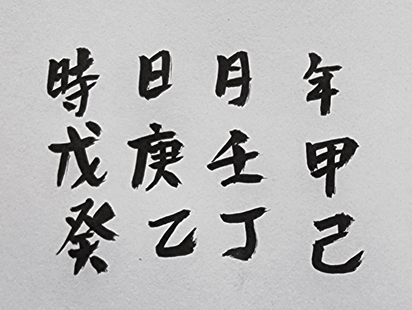 年甲己
月壬丁
日庚乙
時戊癸